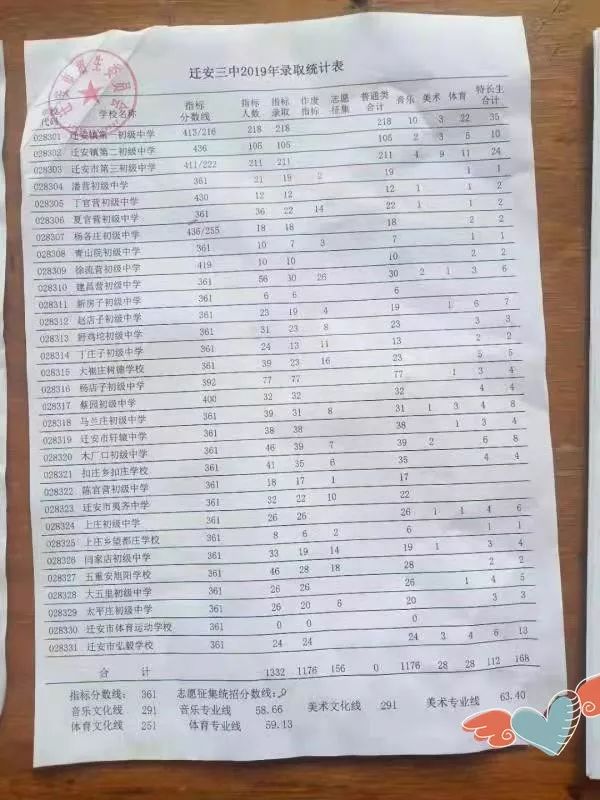 迁安三中2019年录取统计表
学校代码 学校名称 指标分数线 指标人数 指标录取 作废指标 志愿征集 普通类合计 音乐 美术 体育 特长生合计
028301 迁安镇第一初级中学 413/216 218 218 218 10 3 22 35
028302 迁安镇第二初级中学 436 105 105 105 2 3 5 10
028303 迁安市第三初级中学 411/222 211 211 211 4 9 11 24
028304 潘营初级中学 361 21 19 2 19 1 1
028305 丁官营初级中学 430 12 12 12 1 1 2
028306 夏官营初级中学 361 36 22 14 22 1 1 2
028307 杨各庄初级中学 436/255 18 18 18 2 2
028308 青山院初级中学 361 10 7 3 7 1 1
028309 徐流营初级中学 419 10 10 10 2 2
028310 建昌营初级中学 361 56 30 26 30 2 1 3 6
028311 新房子初级中学 361 6 6 6
028312 赵店子初级中学 361 23 19 4 19 1 6 7
028313 野鸡坨初级中学 361 31 23 8 23 3 3
028314 丁庄子初级中学 361 24 13 11 13 2 2
028315 大崔庄树德学校 361 39 23 16 23 5 5
028316 杨店子初级中学 392 77 77 77 1 3 4
028317 蔡园初级中学 400 32 32 32 4 4
028318 马兰庄初级中学 361 39 31 8 31 1 3 4 8
028319 迁安市轩辕中学 361 38 38 38 1 3 4
028320 木厂口初级中学 361 46 39 7 39 2 6 8
028321 扣庄乡扣庄学校 361 41 35 6 35 4 4
028322 陈官营初级中学 361 18 17 1 17
028323 迁安市夷齐中学 361 32 22 10 22
028324 上庄初级中学 361 26 26 26 1 1 4 6
028325 上庄乡望都庄学校 361 8 6 2 6 1 1
028326 闫家店初级中学 361 33 19 14 19 1 3 4
028327 五重安旭阳学校 361 46 28 18 28 2 2
028328 大五里初级中学 361 26 26 26 1 4 5
028329 太平庄初级中学 361 26 20 6 20 3 3
028330 迁安市体育运动学校 361 0 0 0
028331 迁安市弘毅学校 361 24 24 24 3 4 6 13
合 计 1332 1176 156 0 1176 28 28 112 168
指标分数线: 361 志愿征集统招分数线:
音乐文化线 291 音乐专业线 58.66 美术文化线 291 美术专业线 63.40
体育文化线 251 体育专业线 59.13